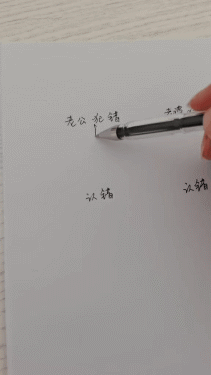 老公犯错
认错
认错